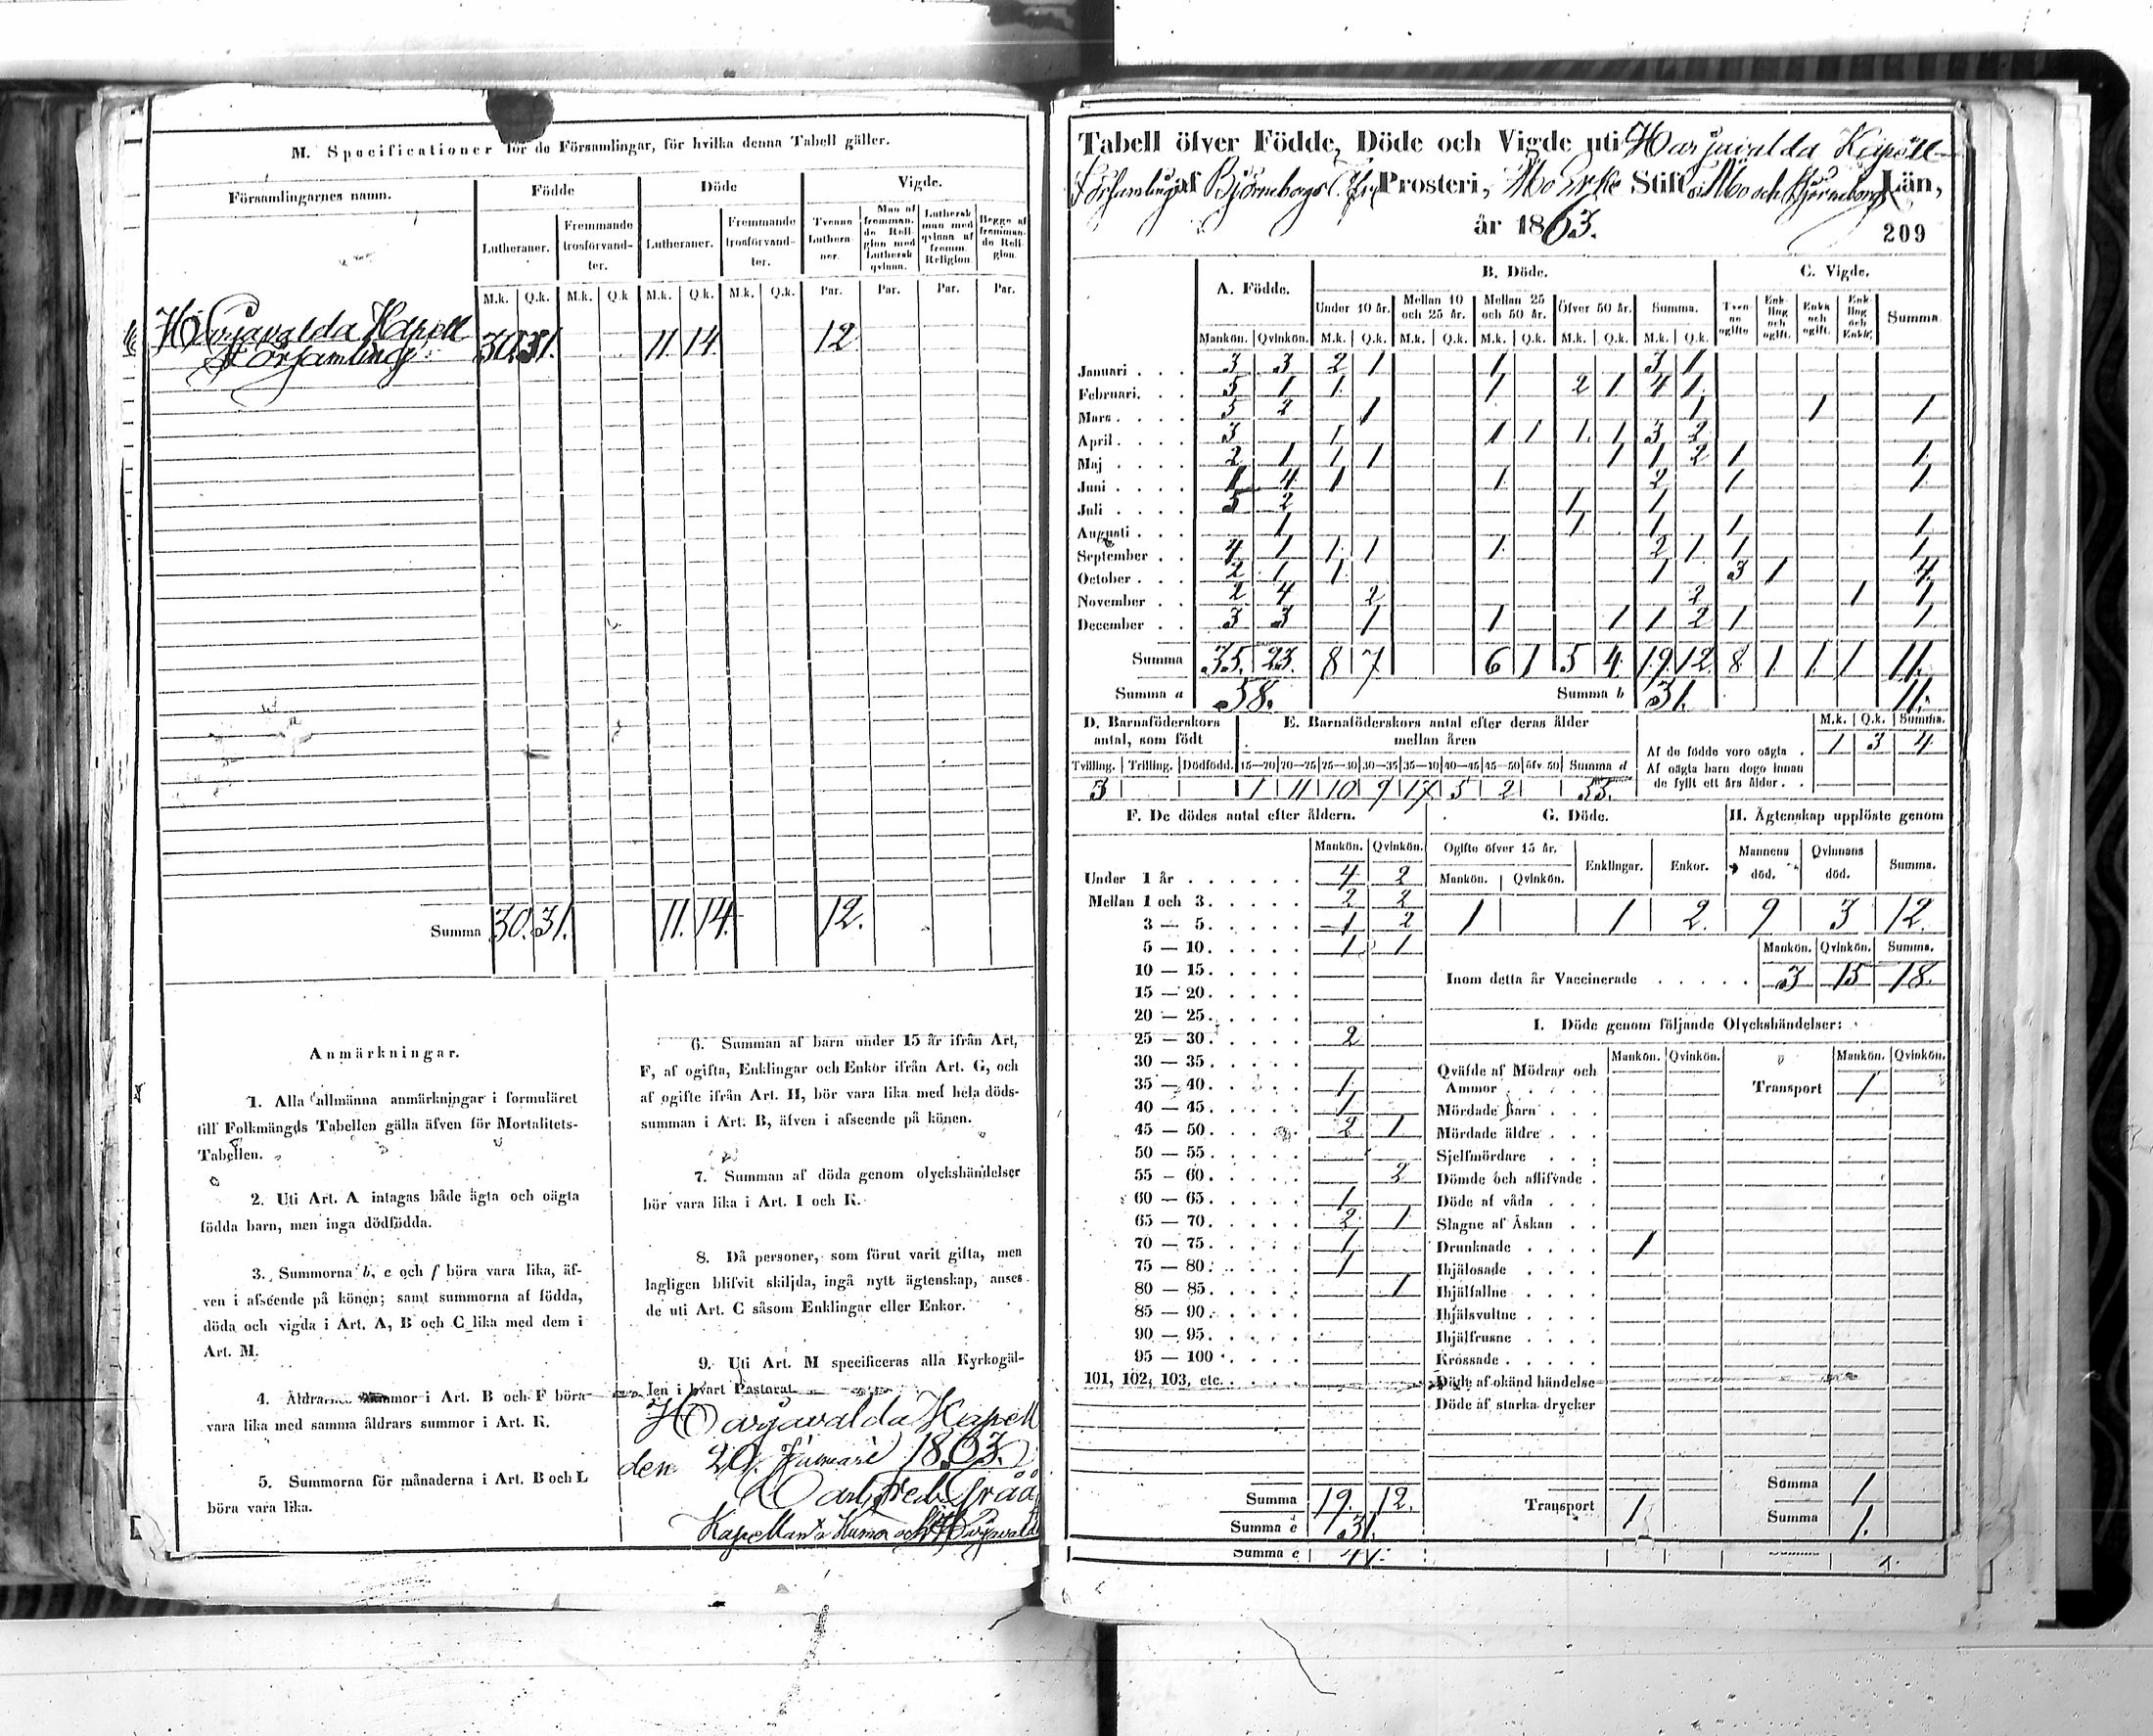 M. Specificationer för de Församlingar, för hvilka denna Tabell gäller.
Församlingarnes namn.
Födde
Döde
Vigde.
Lutheraner.
Fremmande trosförvandter.
Lutheraner.
Fremmande trosförvandter.
Tvenne Lutheraner.
Man af fremmande Religion med Luthersk qvinna.
Luthersk man med qvinna af fremm. Religion
Begge af fremmande Religion.
M.k. Q.k. M.k. Q.k M.k. Q.k. M.k. Q.k. Par. Par. Par. Par.
Harjavalda Kapell 30. 31. 11. 14. 12
Församling
Summa 30. 31. 11. 14. 12.
Anmärkningar.
1. Alla allmänna anmärkningar i formuläret
till Folkmängds Tabellen gälla äfven för Mortalitets-
Tabellen.
2. Uti Art. A intagas både ägta och oägta
födda barn, men inga dödfödda.
3. Summorna b, e och f böra vara lika, äf-
ven i afseende på könen; samt summorna af födda,
döda och vigda i Art. A, B och C lika med dem i
Art. M.
4. Åldrarnes summor i Art. B och F böra
vara lika med samma åldrars summor i Art. K.
5. Summorna för månaderna i Art. B och L
böra vara lika.
6. Summan af barn under 15 år ifrån Art.
F, af ogifta, Enklingar och Enkor ifrån Art. G, och
af ogifte ifrån Art. H, bör vara lika med hela döds-
summan i Art. B, äfven i afseende på könen.
7. Summan af döda genom olyckshändelser
bör vara lika i Art. I och K.
8. Då personer, som förut varit gifta, men
lagligen blifvit skiljda, ingå nytt ägtenskap, anses
de uti Art. C såsom Enklingar eller Enkor.
9. Uti Art. M specificeras alla Kyrkogäl-
len i hvart Pastorat
Harjavalda Kapell
den 20. Januari 1863.
Carl Fredr. Gråå
Kapellan i Kumo och Harjavalda
Tabell öfver Födde, Döde och Vigde uti Harjavalda Kapell-
Församling af Björneborgs Prosteri, Åbo Erke Stift, Åbo och Björneborgs Län,
år 1863.
209
A. Födde.
B. Döde.
C. Vigde.
Under 10 år. Mellan 10 och 25 år. Mellan 25 och 50 år. Öfver 50 år. Summa.
Tvenne ogifte Enkling och ogift. Enka och ogift. Enkling och Enka. Summa.
Mankön. Qvinkön. M.k. Q.k. M.k. Q.k. M.k. Q.k. M.k. Q.k. M.k. Q.k.
Januari 3 3 2 1 1 3 1
Februari 5 1 1 1 2 1 4 1
Mars 5 2 1 1 1 1
April 3 1 1 1 1 1 3 2
Maj 2 1 1 1 1 1 2 1 1
Juni 1 4 1 1 2 1 1
Juli 5 2 1 1
Augusti 1 1 1 1 1
September 4 1 1 1 1 2 1 1 1
October 2 1 1 1 3 1 4
November 2 4 2 2 1 1
December 3 3 1 1 1 1 2 1 1
Summa 35. 23. 8 7 6 1 5 4 19. 12 8 1 1 1 11.
Summa a 58. Summa b 31. 11.
D. Barnaföderskors antal, som födt
E. Barnaföderskors antal efter deras ålder mellan åren
M.k. Q.k. Summa.
Af de födde voro oägta 1 3 4
Af oägta barn dogo innan
de fyllt ett års ålder
Tvilling. Trilling. Dödfödd. 15—20 20—25 25—30 30—35 35—40 40—45 45—50 öfv. 50 Summa d
3 1 11 10 9 17 5 2 55.
F. De dödes antal efter åldern.
Mankön. Qvinkön.
Under 1 år 4 2
Mellan 1 och 3 2 2
3 — 5 1 2
5 — 10 1 1
10 — 15
15 — 20
20 — 25
25 — 30 2
30 — 35
35 — 40 1
40 — 45 1
45 — 50 2 1
50 — 55
55 — 60 2
60 — 65 1
65 — 70 2 1
70 — 75 1
75 — 80 1
80 — 85 1
85 — 90
90 — 95
95 — 100
101, 102, 103, etc.
Summa 19. 12.
Summa e 31.
Summa e
G. Döde.
Ogifte öfver 15 år. Enklingar. Enkor.
Mankön. Qvinkön.
1 1 2.
H. Ägtenskap upplöste genom
Mannens död. Qvinnans död. Summa.
9 3 12.
Mankön. Qvinkön. Summa.
Inom detta år Vaccinerade 3 15 18.
I. Döde genom följande Olyckshändelser:
Mankön. Qvinkön. Mankön. Qvinkön.
Qväfde af Mödrar och
Ammor
Transport 1
Mördade Barn
Mördade äldre
Sjelfmördare
Dömde och aflifvade
Döde af våda
Slagne af Åskan
Drunknade 1
Ihjälosade
Ihjälfallne
Ihjälsvultne
Ihjälfrusne
Krossade
Döde af okänd händelse
Döde af starka drycker
Summa 1
Transport 1 Summa 1.